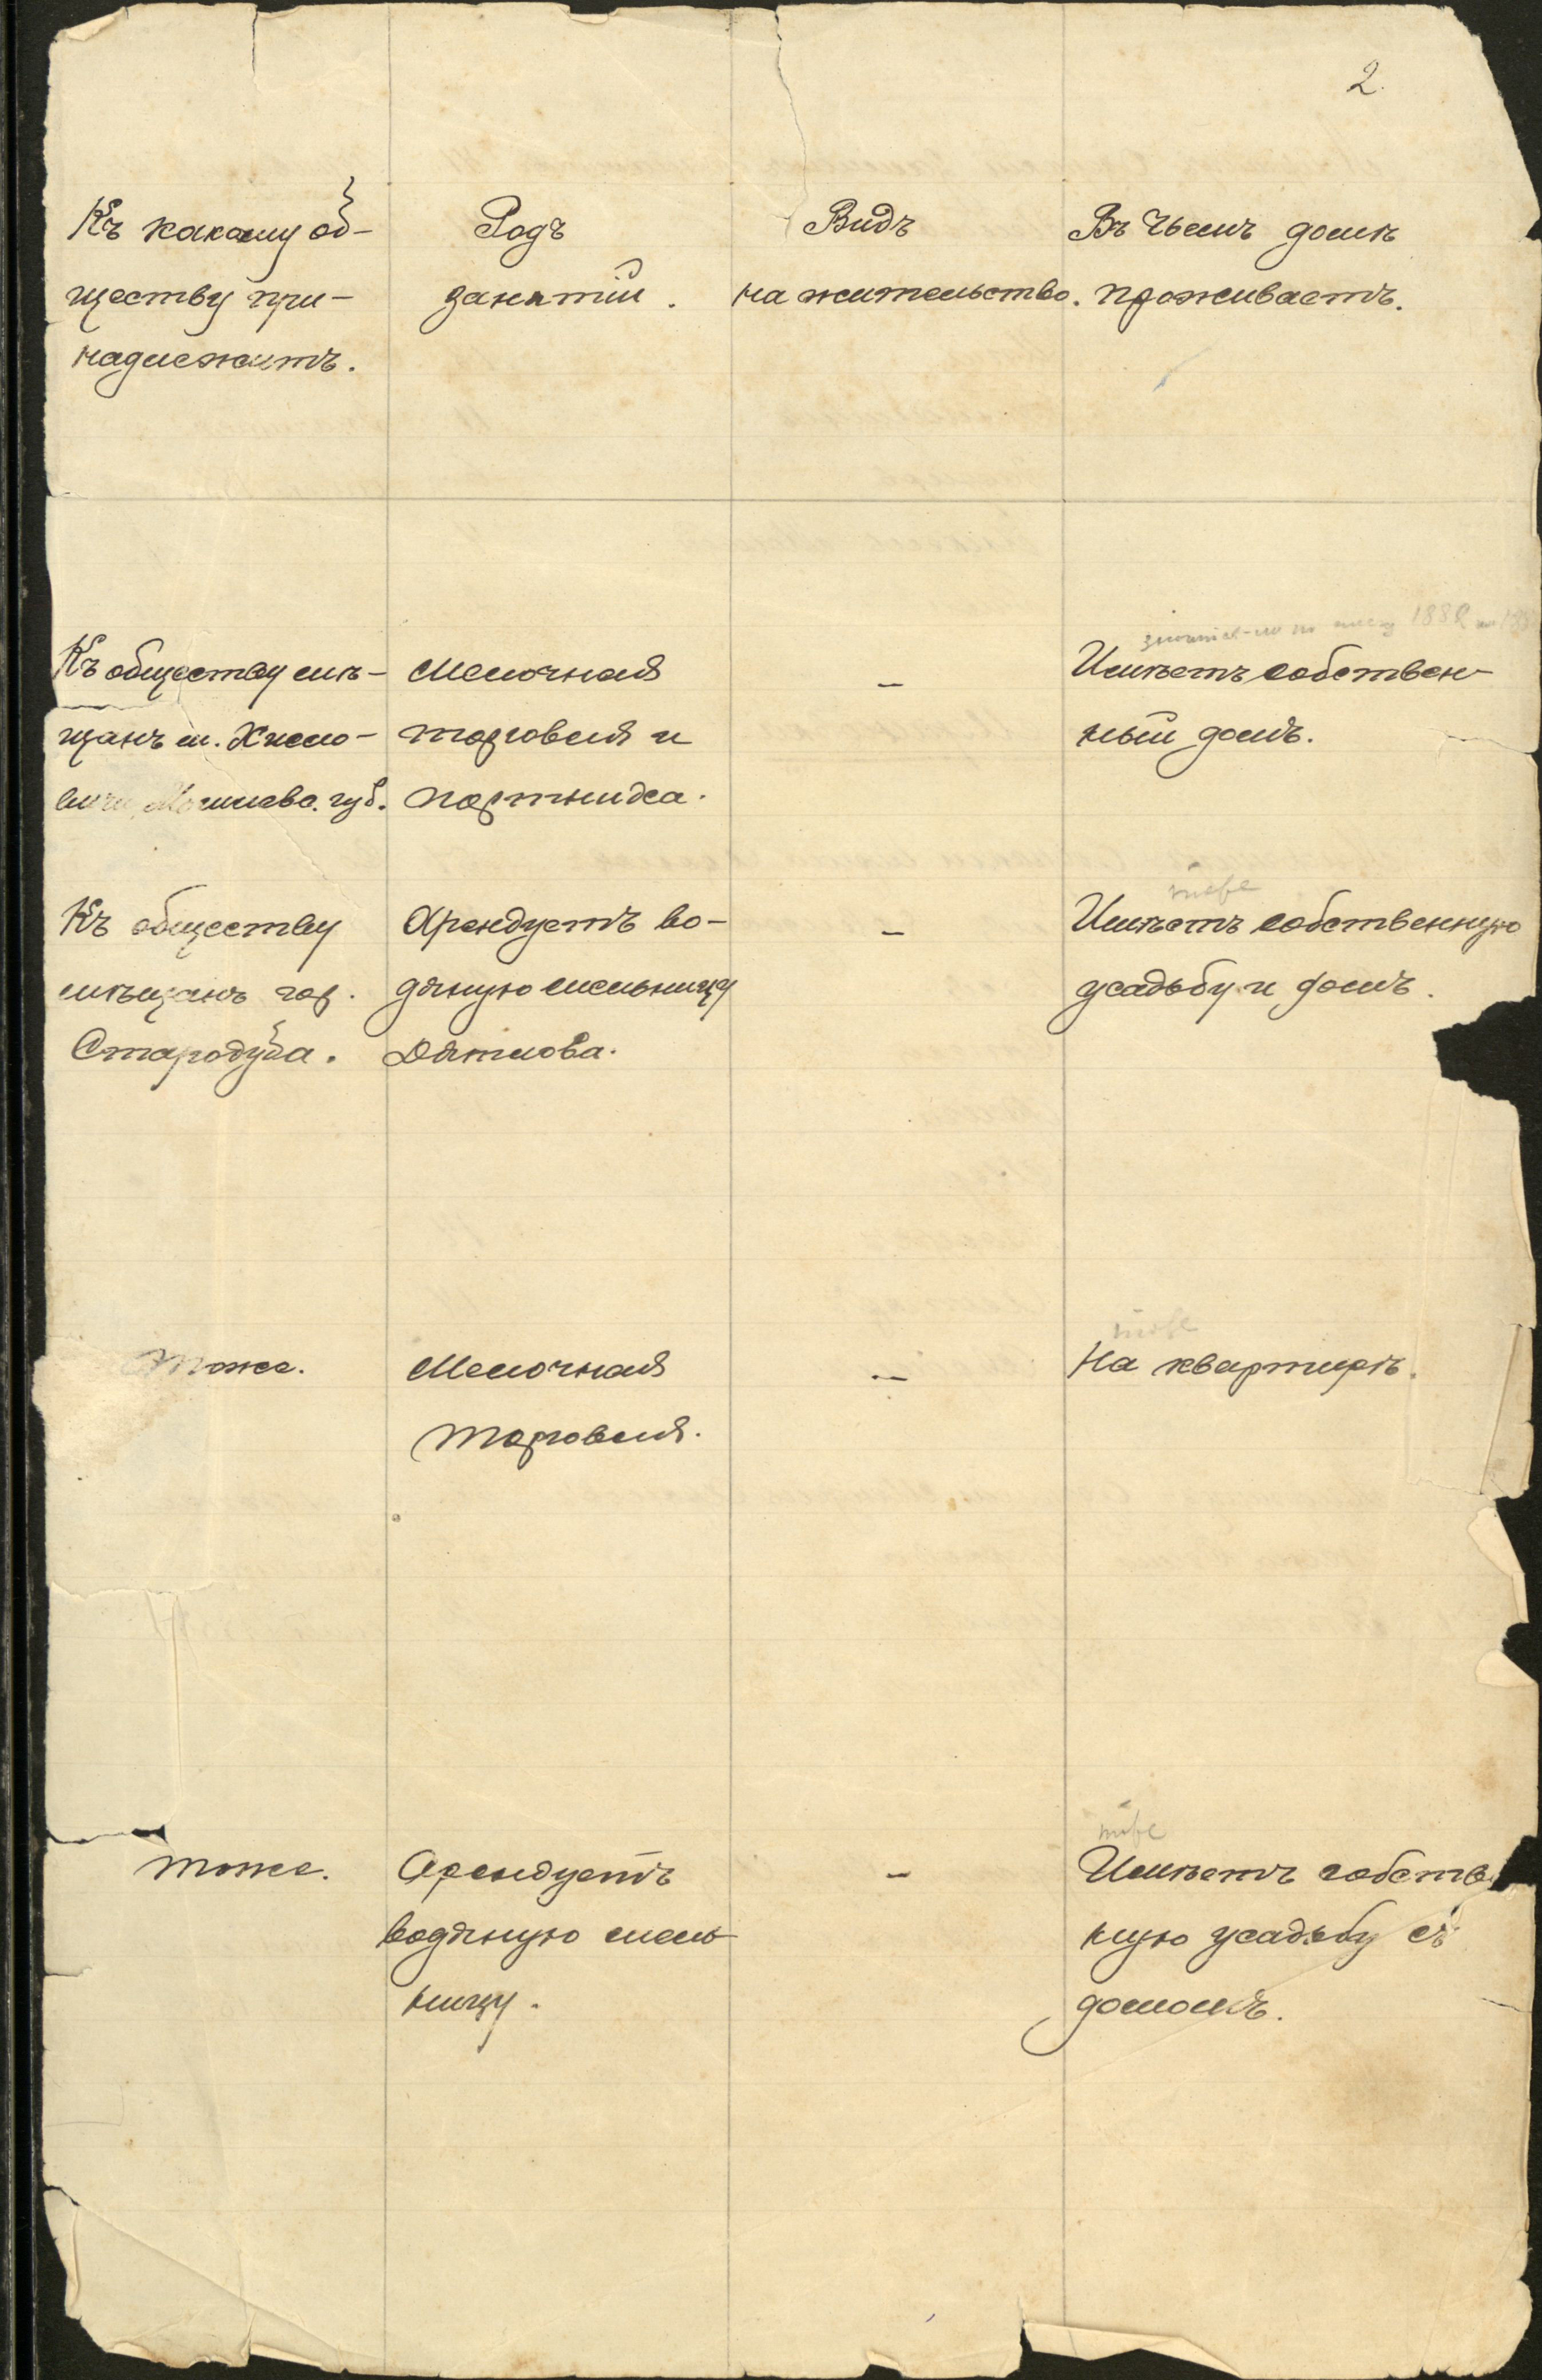 2.
Къ какому об-
ществу при-
надлежитъ.
Родъ
занятій.
Видъ
на жительство.
Въ чьемъ домѣ
проживаетъ.
Къ обществу мѣ-
щанъ м. Хисло-
вичи, Могилевс. губ.
Мелочная
торговля и
портниха.
—
1888
Имѣетъ собствен-
ный домъ.
Къ обществу
мѣщанъ гор.
Стародуба.
Арендуетъ во-
дяную мельницу
Дятлова.
—
тоже
Имѣетъ собственную
усадьбу и домъ.
Тоже.
Мелочная
торговля.
—
тоже
На квартирѣ.
Тоже.
Арендуетъ
водяную мель-
ницу.
—
тоже
Имѣетъ собстве
нную усадьбу съ
домомъ.